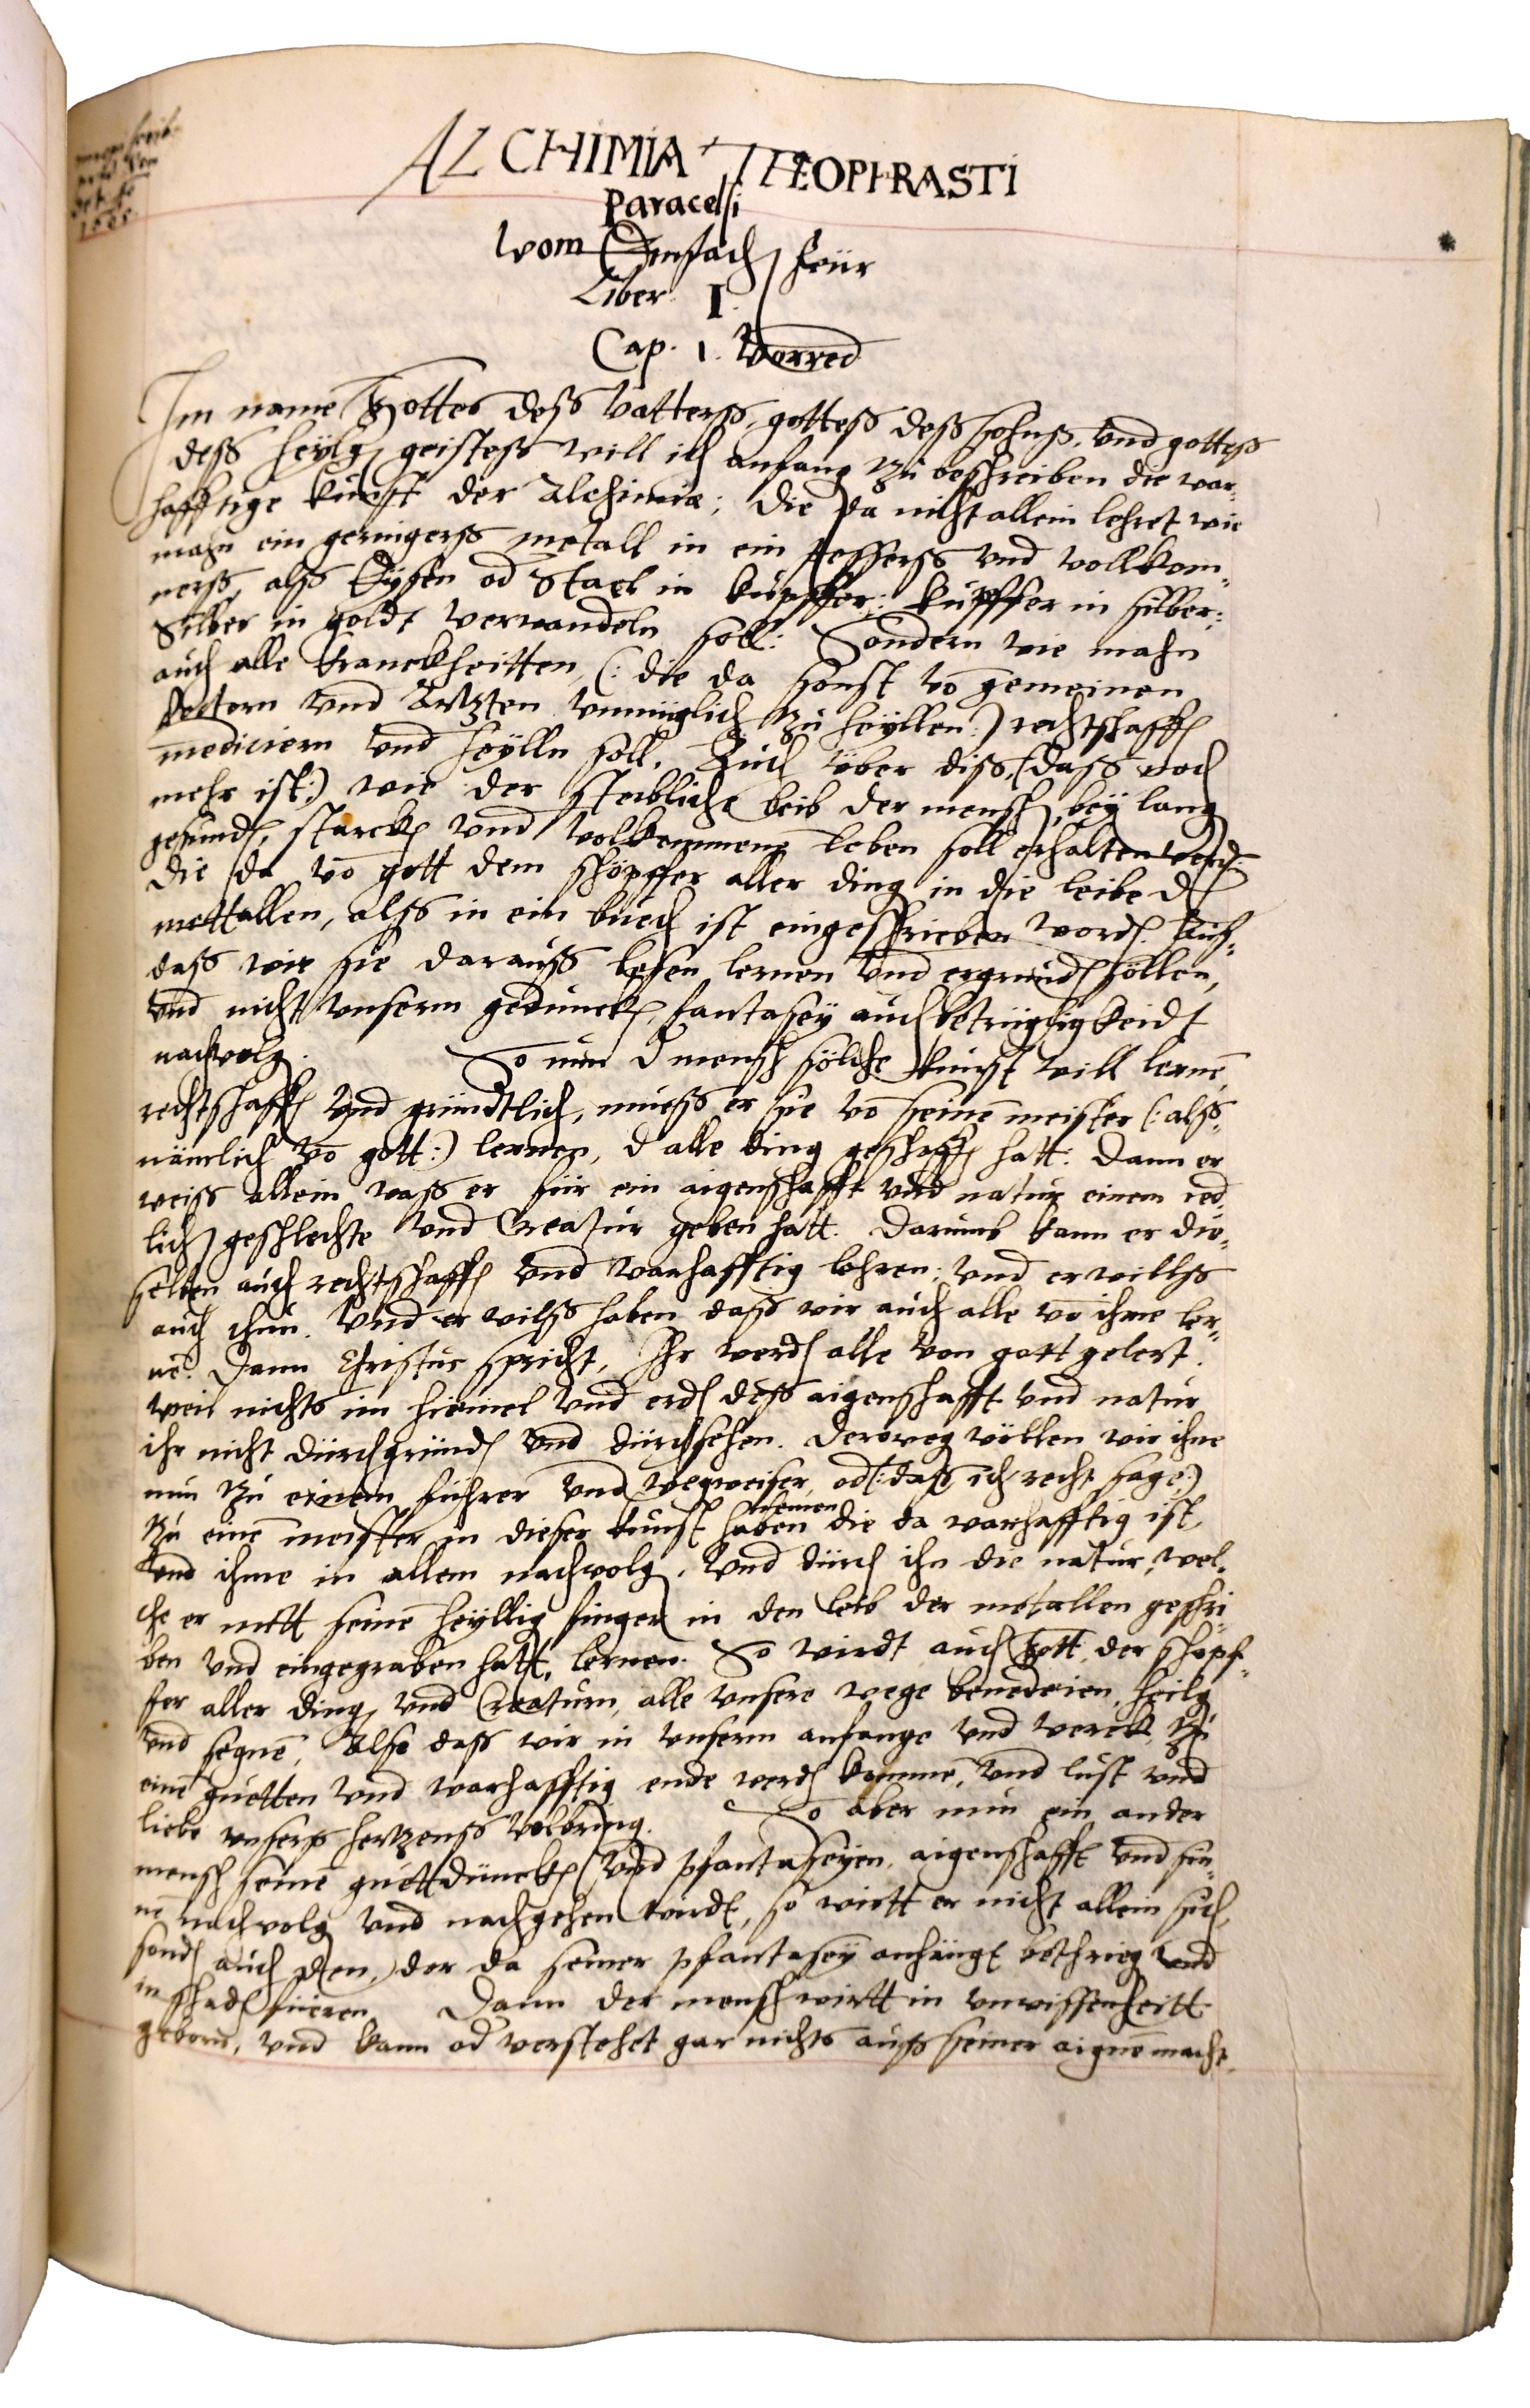 ALCHIMIA THEOPHRASTI
Paracelsi
Vom Einfach feür
Liber I.
Cap. 1. Vorred
Im name Gottes deß Vatterß, gotteß deß sohnß, vnd gotteß
deß heylg geisteß will ich anfang zů beschreiben die war-
hafftige kunst der Alchimiæ; die da nicht allein lehret wie
mahn ein geringerß metall in ein besserß vnd vollkom-
nerß, alß Eysen od Stael in kupffer: kupffer in silber:
Silber in goldt verwandeln soll: Sondern wie mahn
auch alle Kranckheitten, (: die da sonst vō gemeinen
doctorn vnd Artzten vnmüglich zů heyllen:) rechtschaffē
mediciern vnd heylln soll. Auch über diß, (daß noch
mehr ist:) wie der sterbliche leib der mensch, bey lang
gesund, starck vnd volkommenē leben soll erhalten werd:
die da vō gott dem schöpffer aller ding in die leibe d
mettallen, alß in ein buech ist eingeschrieben word. Auf-
daß wir sie darauß lesen lernen vnd ergründ sollen,
vnd nicht vnserm gedunck, fantasey auch betrügligkeidt
nachvolg. So nun d mensch sölche kunst will lernē
rechtschaffē vnd gründtlich, mueß er sie vō seinē meister (: alß-
nämlich vō gott:) lernen, d alle ding geschaffē hatt: Dann er
weiß allein waß er für ein aigenschafft vnd natur einem ied-
lich geschlechte vnd Creatur geben hatt. Darumb kann er die-
selben auch rechtschaffē vnd warhafftig lehren: vnd er willß
auch thun. Vnd er wilß haben daß wir auch alle vō ihme ler-
nē. Dann Christus spricht, Ihr werd alle von gott gelert.
weil nichts im himmel vnd erd deß aigenschafft vnd natur
ihr nicht durchgründ vnd durchsehen. Derweg wöllen wir ihne
nun zů einem führer vnd wegweiser, od (: daß ich recht sage:)
nemen
zů einē meister in dieser kunst haben die da warhafftig ist,
vnd ihme in allem nachvolg, vnd durch ihn die natur, wel-
che er mitt seinē heyllig finger in den leib der metallen geschri-
ben vnd eingegraben hatt, lernen. So wirdt auch Gott der schöpf-
fer aller ding, vnd Creaturn, alle vnsere wege benedeien, heilg
vnd segnē, Also daß wir in vnserm anfange vnd werck, zů
einē guetten vnd warhafftig ende werd kommē, vnd lust vnd
liebe vnserß hertzenß volbring. So aber nun ein ander
mensch seinē guettdunck vnd pfantaseyen, aigenschafft vnd sin-
nē nachvolg vnd nachgehen wirdt, so wirtt er nicht allein sich,
sond auch den, der da seiner pfantasey anhängt bethrieg vnd
in schad füeren. Dann der mensch wirtt in vnwissenheitt
geborn, vnd kann od verstehet gar nichts auß seiner aignē macht,